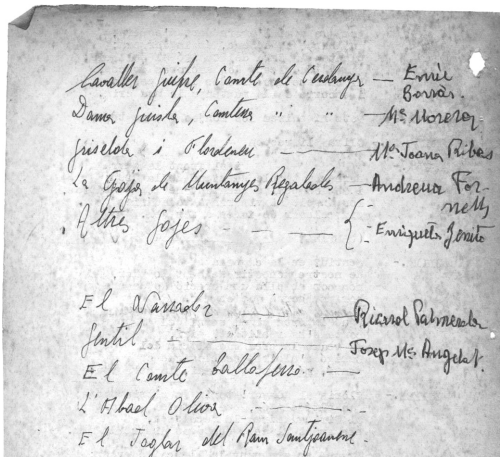 Cavaller Guifre, Comte de Cerdanya — Enric Borràs.
Dama Guisla, Comtesa " " — Mª Morera
Griselda i Flordeneu — Mª Joana Ribas
La Goja de Muntanyes Regalades — Andreua Fornells
Altres Gojes - - — { - Enriqueta Benito
El Narrador — Ricard Palmerola
Gentil - — Josep Mª Angelat.
El Comte Tallaferro —
L'Abad Oliva —
El Joglar del Ram Santjoanenc.